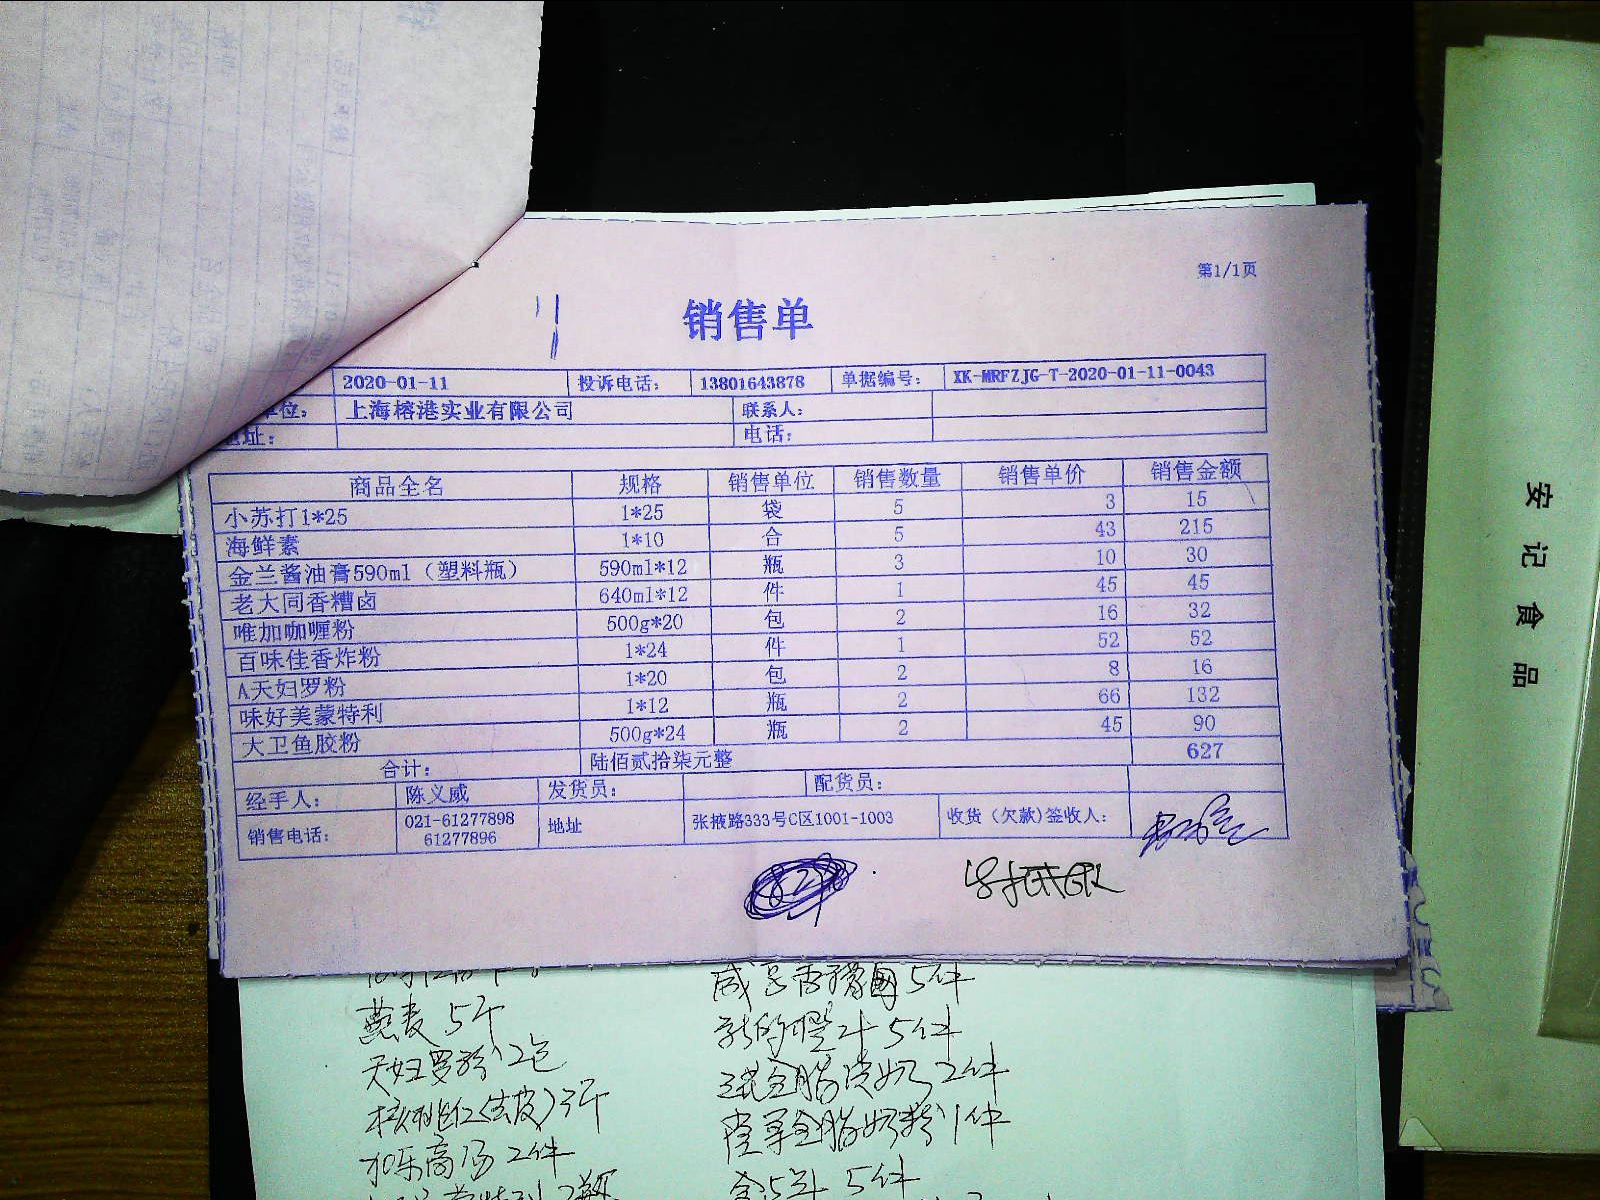 第1/1页
销售单
2020-01-11 投诉电话: 13801643878 单据编号: XK-MRFZJG-T-2020-01-11-0043
单位: 上海榕港实业有限公司 联系人:
地址: 电话:
商品全名 规格 销售单位 销售数量 销售单价 销售金额
小苏打1*25 1*25 袋 5 3 15
海鲜素 1*10 合 5 43 215
金兰酱油膏590ml（塑料瓶） 590ml*12 瓶 3 10 30
老大同香糟卤 640ml*12 件 1 45 45
唯加咖喱粉 500g*20 包 2 16 32
百味佳香炸粉 1*24 件 1 52 52
A天妇罗粉 1*20 包 2 8 16
味好美蒙特利 1*12 瓶 2 66 132
大卫鱼胶粉 500g*24 瓶 2 45 90
合计: 陆佰贰拾柒元整 627
经手人: 陈义威 发货员: 配货员:
销售电话: 021-61277898 61277896 地址 张掖路333号C区1001-1003 收货（欠款)签收人:
燕麦 5斤
天妇罗粉 2包
核桃仁(去皮) 3斤
加乐高汤 2件
5件
新的橙汁 5件
全脂淡奶 2件
全脂奶粉 1件
5件
安记食品